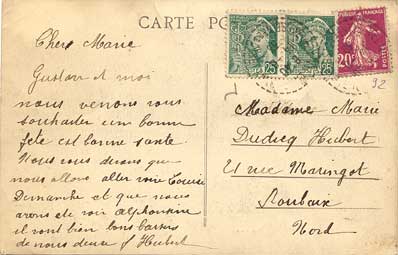 CARTE PO
Chere Marie
Gustave et moi
nous venons vous
souhaiter une bonne
fete est bonne sante
Nous vous disons que
nous allons aller voir Louise
Dimanche et que nous
avons ete voir alphonsine
il vont bien bons baisers
de nous deux Hubert
25
25
POSTES
20c
92
Madame Marie
Hubert
21 rue Maringot
Roubaix
Nord